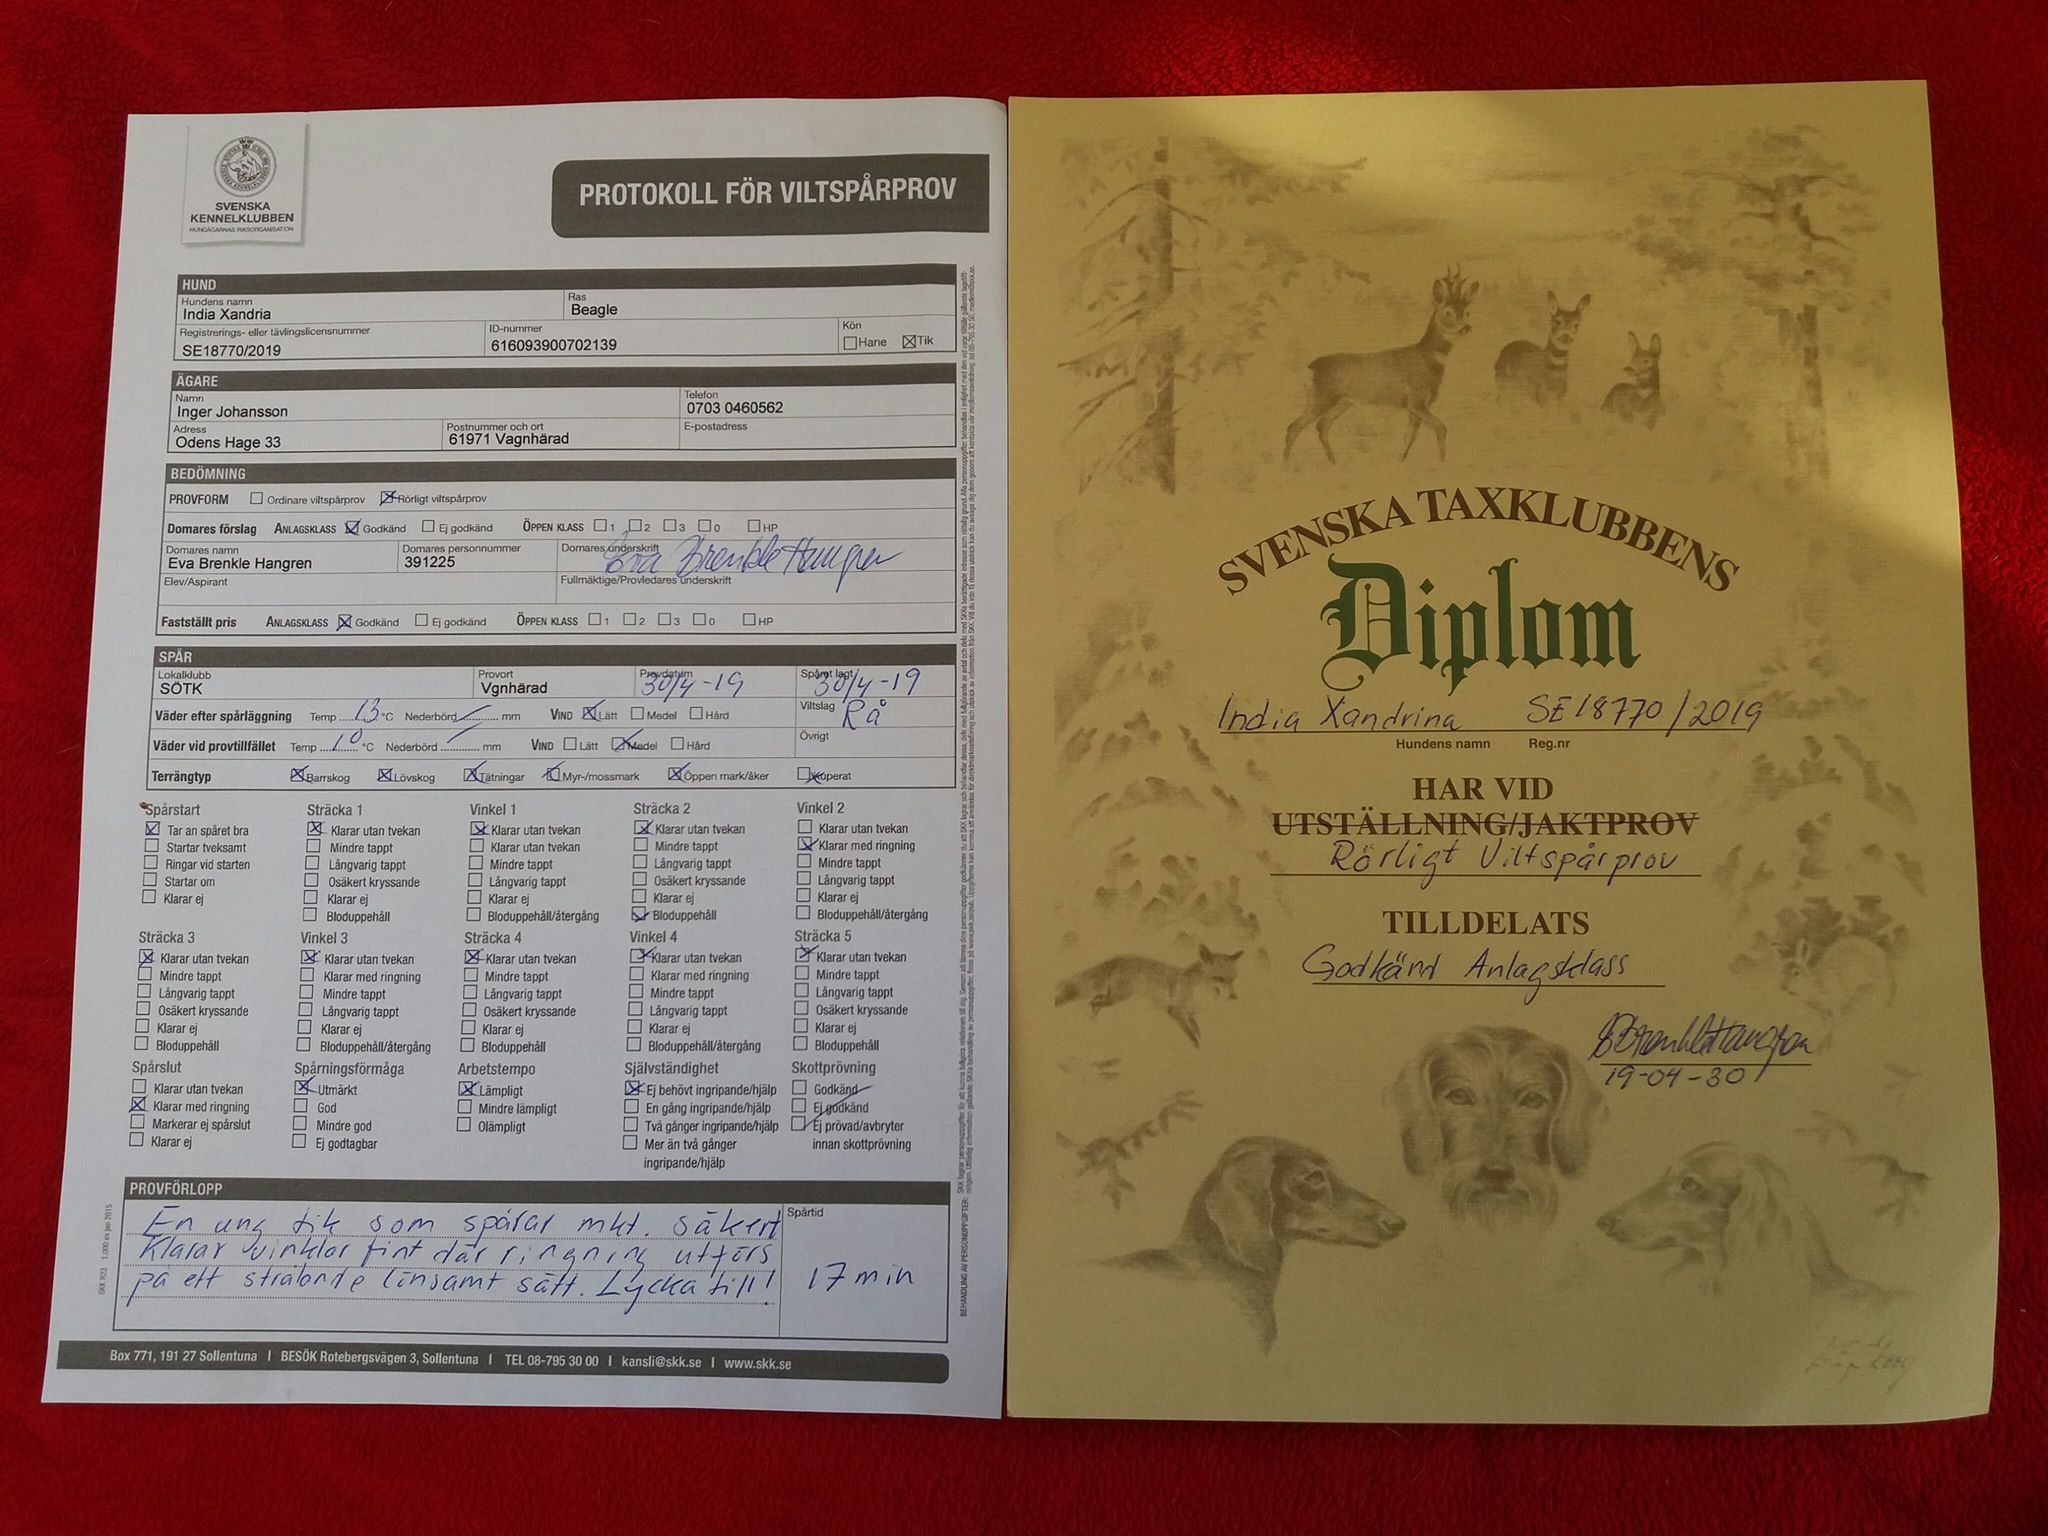 SVENSKA
KENNELKLUBBEN
HUNDÄGARNAS RIKSORGANISATION
PROTOKOLL FÖR VILTSPÅRPROV
HUND
Hundens namn Ras
India Xandria Beagle
Registrerings- eller tävlingslicensnummer ID-nummer Kön
SE18770/2019 616093900702139 Hane Tik
ÄGARE
Namn Telefon
Inger Johansson 0703 0460562
Adress Postnummer och ort E-postadress
Odens Hage 33 61971 Vagnhärad
BEDÖMNING
PROVFORM Ordinare viltspårprov Rörligt viltspårprov
Domares förslag ANLAGSKLASS Godkänd Ej godkänd ÖPPEN KLASS 1 2 3 0 HP
Domares namn Domares personnummer Domares underskrift
Eva Brenkle Hangren 391225 Eva Brenkle Hangren
Elev/Aspirant Fullmäktige/Provledares underskrift
Fastställt pris ANLAGSKLASS Godkänd Ej godkänd ÖPPEN KLASS 1 2 3 0 HP
SPÅR
Lokalklubb Provort Provdatum Spåret lagt
SÖTK Vgnhärad 30/4-19 30/4-19
Väder efter spårläggning Temp 13 °C Nederbörd mm VIND Lätt Medel Hård Viltslag Rå
Väder vid provtillfället Temp 10 °C Nederbörd mm VIND Lätt Medel Hård Övrigt
Terrängtyp Barrskog Lövskog Tätningar Myr-/mossmark Öppen mark/åker Kuperat
Spårstart Sträcka 1 Vinkel 1 Sträcka 2 Vinkel 2
Tar an spåret bra Klarar utan tvekan Klarar utan tvekan Klarar utan tvekan Klarar utan tvekan
Startar tveksamt Mindre tappt Klarar utan tvekan Mindre tappt Klarar med ringning
Ringar vid starten Långvarig tappt Mindre tappt Långvarig tappt Mindre tappt
Startar om Osäkert kryssande Långvarig tappt Osäkert kryssande Långvarig tappt
Klarar ej Klarar ej Klarar ej Klarar ej Klarar ej
Bloduppehåll Bloduppehåll/återgång Bloduppehåll Bloduppehåll/återgång
Sträcka 3 Vinkel 3 Sträcka 4 Vinkel 4 Sträcka 5
Klarar utan tvekan Klarar utan tvekan Klarar utan tvekan Klarar utan tvekan Klarar utan tvekan
Mindre tappt Klarar med ringning Mindre tappt Klarar med ringning Mindre tappt
Långvarig tappt Mindre tappt Långvarig tappt Mindre tappt Långvarig tappt
Osäkert kryssande Långvarig tappt Osäkert kryssande Långvarig tappt Osäkert kryssande
Klarar ej Klarar ej Klarar ej Klarar ej Klarar ej
Bloduppehåll Bloduppehåll/återgång Bloduppehåll Bloduppehåll/återgång Bloduppehåll
Spårslut Spårningsförmåga Arbetstempo Självständighet Skottprövning
Klarar utan tvekan Utmärkt Lämpligt Ej behövt ingripande/hjälp Godkänd
Klarar med ringning God Mindre lämpligt En gång ingripande/hjälp Ej godkänd
Markerar ej spårslut Mindre god Olämpligt Två gånger ingripande/hjälp Ej prövad/avbryter
Klarar ej Ej godtagbar Mer än två gånger innan skottprövning
ingripande/hjälp
PROVFÖRLOPP
Spårtid
En ung tik som spårar mkt. säkert
Klarar vinklar fint där ringning utförs
på ett strålande lönsamt sätt. Lycka till!
17 min
SKK R23 1.000 ex jan 2015
Box 771, 191 27 Sollentuna I BESÖK Rotebergsvägen 3, Sollentuna I TEL 08-795 30 00 I kansli@skk.se I www.skk.se
SVENSKA TAXKLUBBENS
Diplom
India Xandrina SE18770/2019
Hundens namn Reg.nr
HAR VID
UTSTÄLLNING/JAKTPROV
Rörligt Viltspårprov
TILLDELATS
Godkänd Anlagsklass
EBrenkleHangren
19-04-30